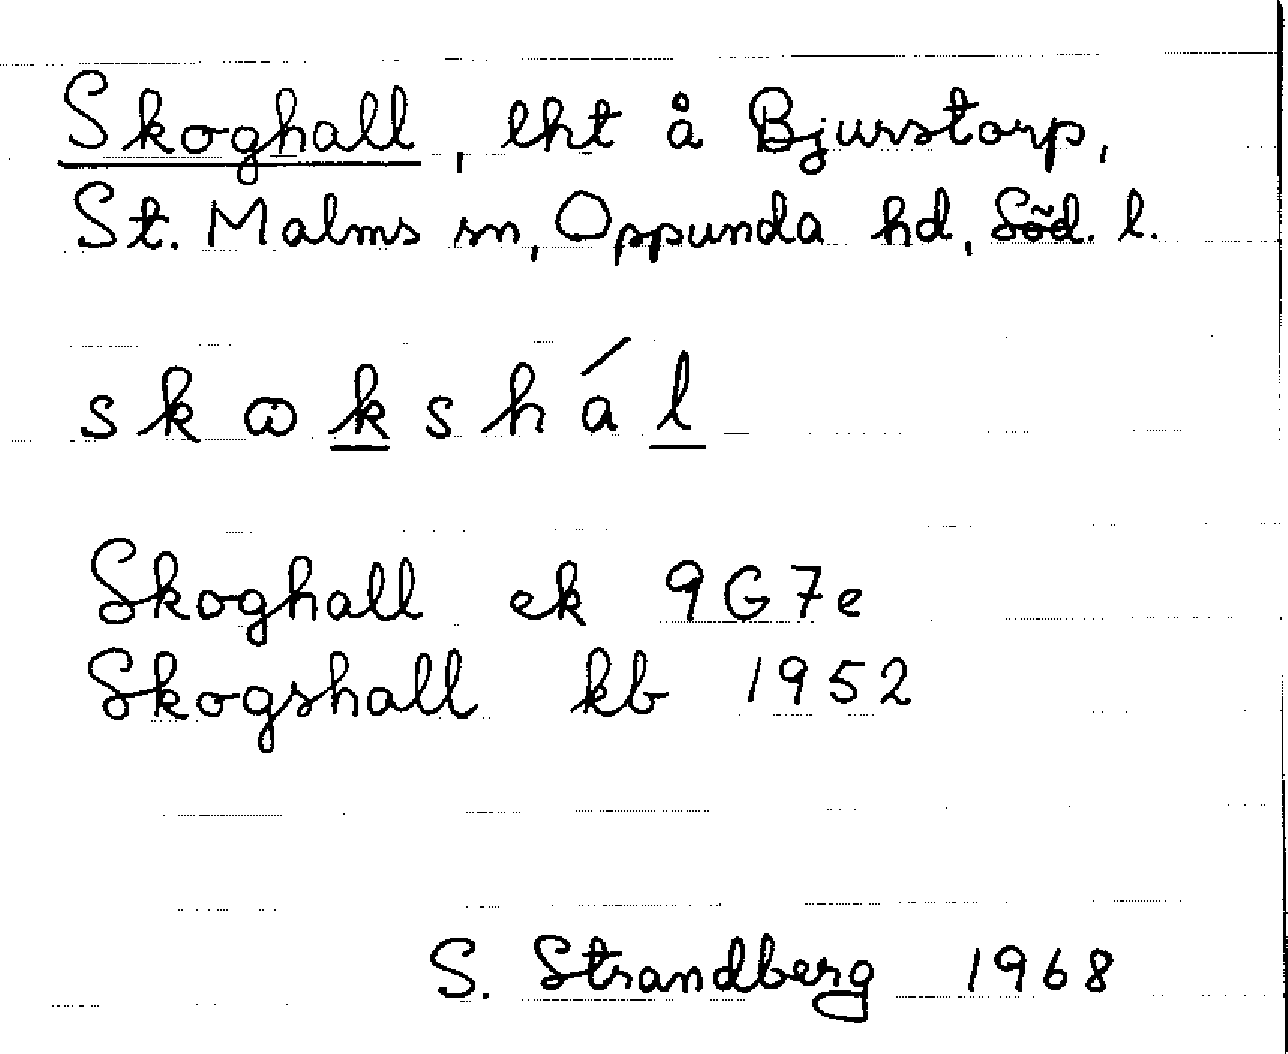 Skoghall, lht å Bjurstorp,
St. Malms sn, Oppunda hd, Söd. l.
skɷkshál
Skoghall ek 9G7e
Skogshall kb 1952
S. Strandberg 1968